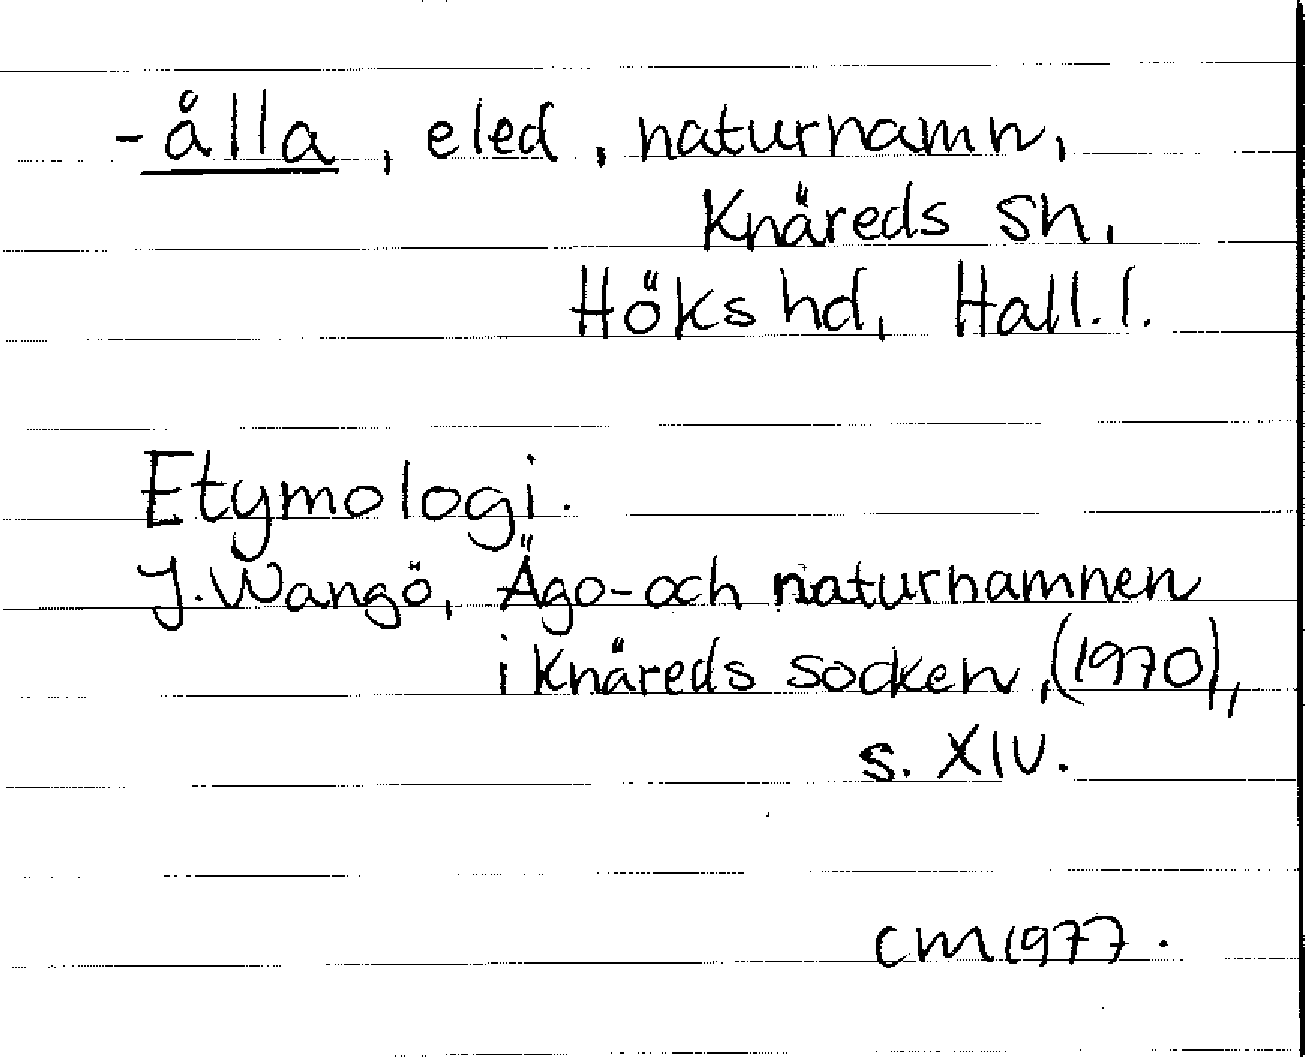 -ålla, eled, naturnamn,
Knäreds sn,
Höks hd, Hall. l.
Etymologi.
J. Wangö, Ägo- och naturnamnen
i Knäreds socken, (1970),
s. XIV.
CM 1977.